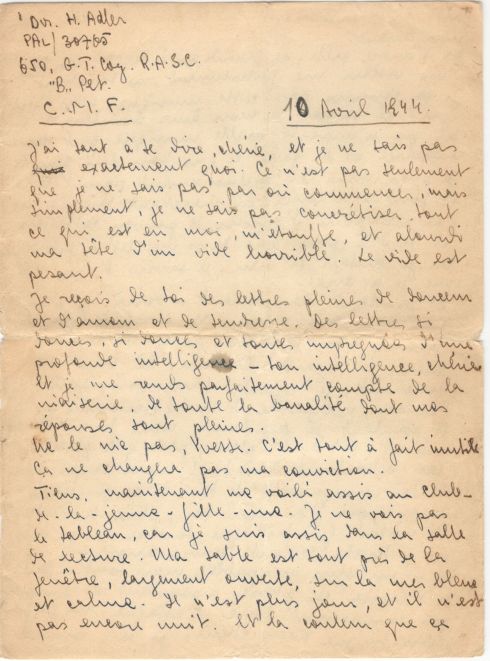 Dvr. H. Adler
PAL/30765
650, G.T. Coy. R.A.S.C.
"B" Pet.
C.M.F.
10 Avril 1944.
J'ai tant à te dire, chérie, et je ne sais pas
exactement quoi. Ce n'est pas seulement
que je ne sais pas par où commencer, mais
simplement, je ne sais pas concrétiser tout
ce qui est en moi, m'étouffe, et alourdi
ma tête d'un vide horrible. Le vide est
pesant.
Je reçois de toi des lettres pleines de douceur
et d'amour et de tendresse. Des lettres si
douces, si douces et toutes impregnées d'une
profonde intelligence – ton intelligence, chérie
Et je me rends parfaitement compte de la
niaiserie, de toute la banalité dont mes
réponses sont pleines.
Ne le nie pas, C'est tout à fait inutile
Ça ne changera pas ma conviction.
Tiens, maintenant me voilà assis au club-
de-la-jeune-fille-nue. Je ne vois pas
le tableau, car je suis assis dans la salle
de lecture. Ma table est tout près de la
fenêtre, largement ouverte, sur la mer bleue
et calme. Il n'est plus jour, et il n'est
pas encore nuit. Et la couleur que ça